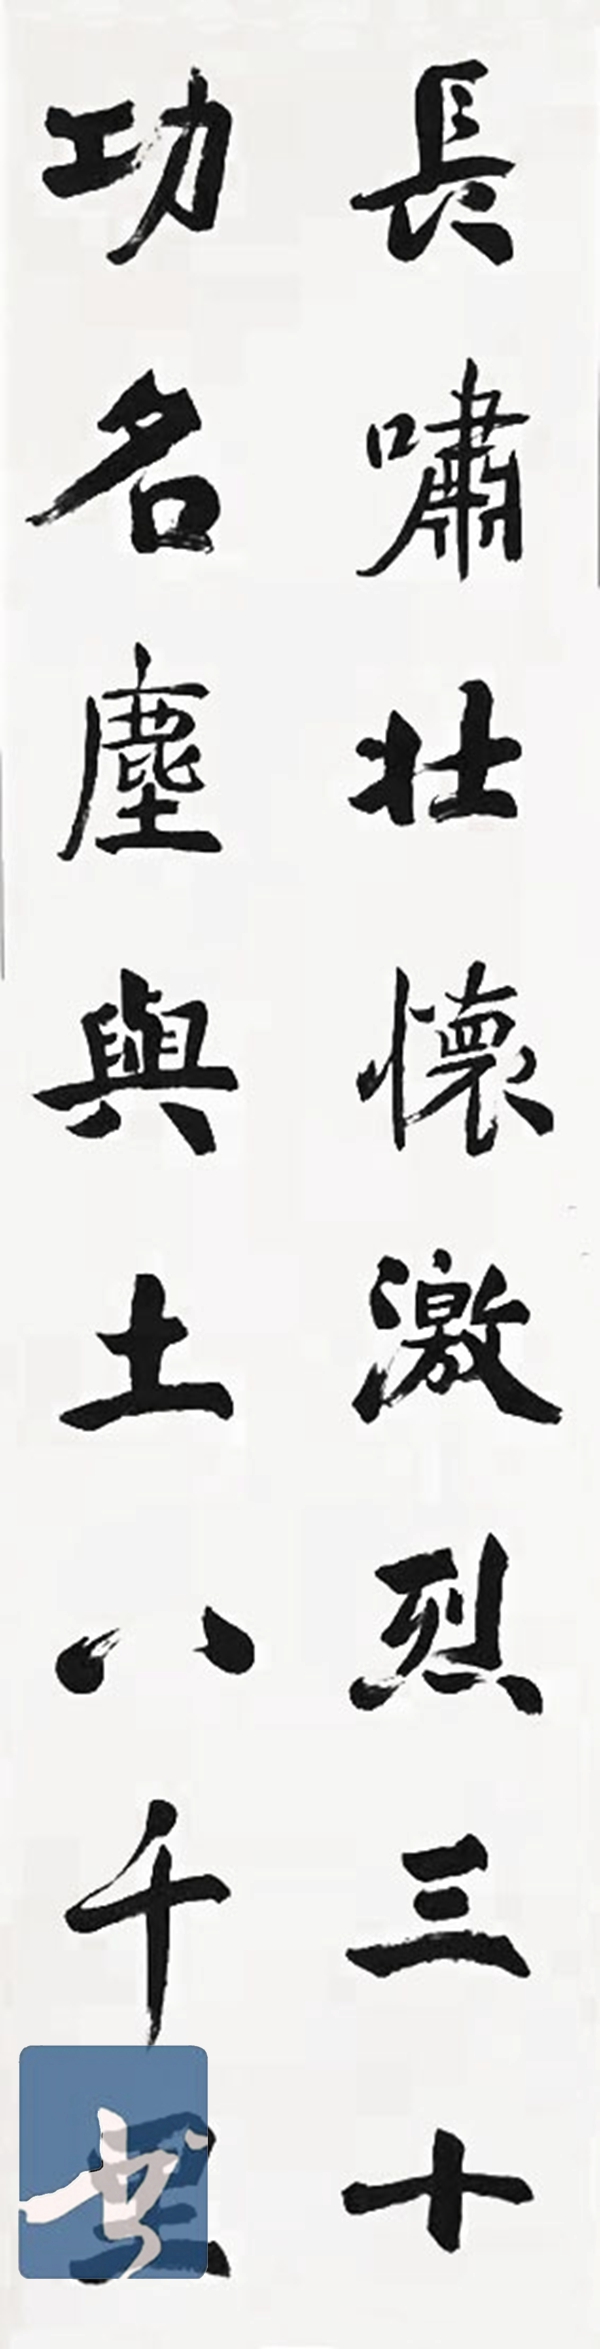 長嘯壯懷激烈三十
功名塵與土八千